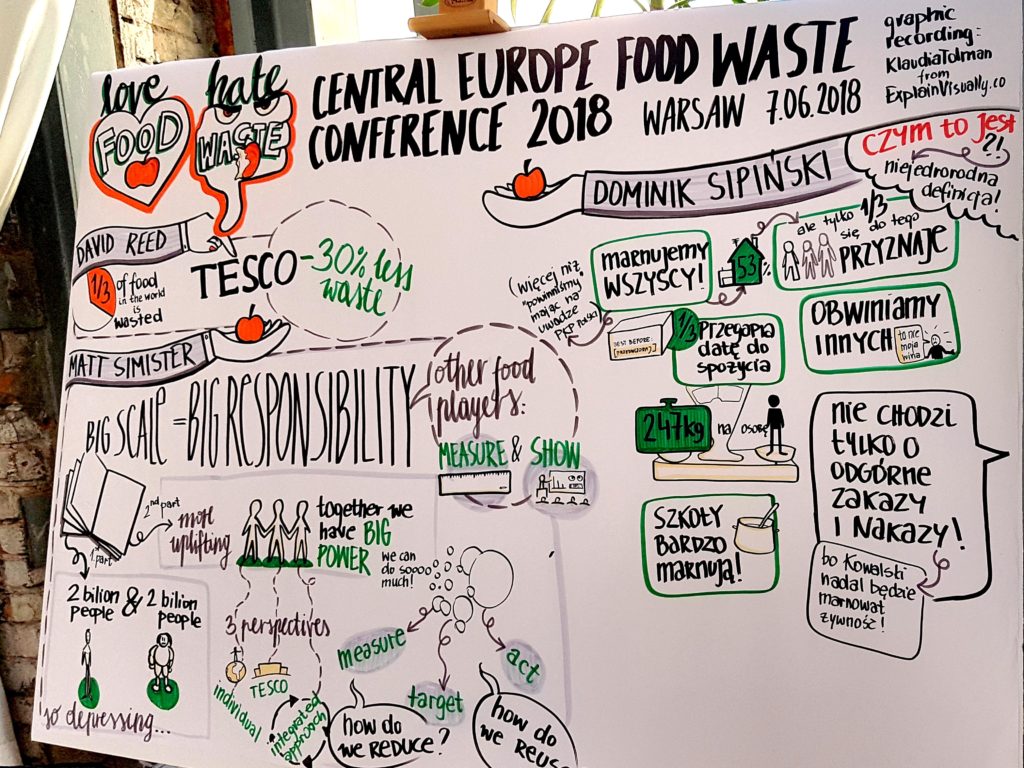 love hate
FOOD
WASTE
CENTRAL EUROPE FOOD WASTE
CONFERENCE 2018 WARSAW 7.06.2018
graphic
recording:
Klaudia Tolman
from
ExplainVisually.co
DAVID REED
1/3
of food
in the world
is
wasted
TESCO
-30% less
waste
MATT SIMISTER
BIG SCALE = BIG RESPONSIBILITY
other food
players:
MEASURE & SHOW
1st part
2nd part
more
uplifting
2 bilion
people
&
2 bilion
people
so depressing...
together we
have BIG
POWER
we can
do soooo
much!
3 perspectives
TESCO
individual
integrated
approach
measure
target
act
how do
we REDUCE?
how do
we REUSE
DOMINIK SIPIŃSKI
CZYM to jest
?!
niejednorodna
definicja!
marnujemy
WSZYSCY!
53
ale tylko 1/3
się do tego
PRZYZNAJE
(więcej niż
"powinniśmy"
mając na
uwadze
PKP Polski)
BEST BEFORE:
1/3
Przegapia
datę do
spożycia
OBWINIAMY
INNYCH
to nie
moja
wina
247kg
na osobę
SZKOŁY
BARDZO
marnują!
nie CHODZI
tylko o
ODGÓRNE
ZAKAZY
I NAKAZY!
bo Kowalski
nadal będzie
marnował
żywność!